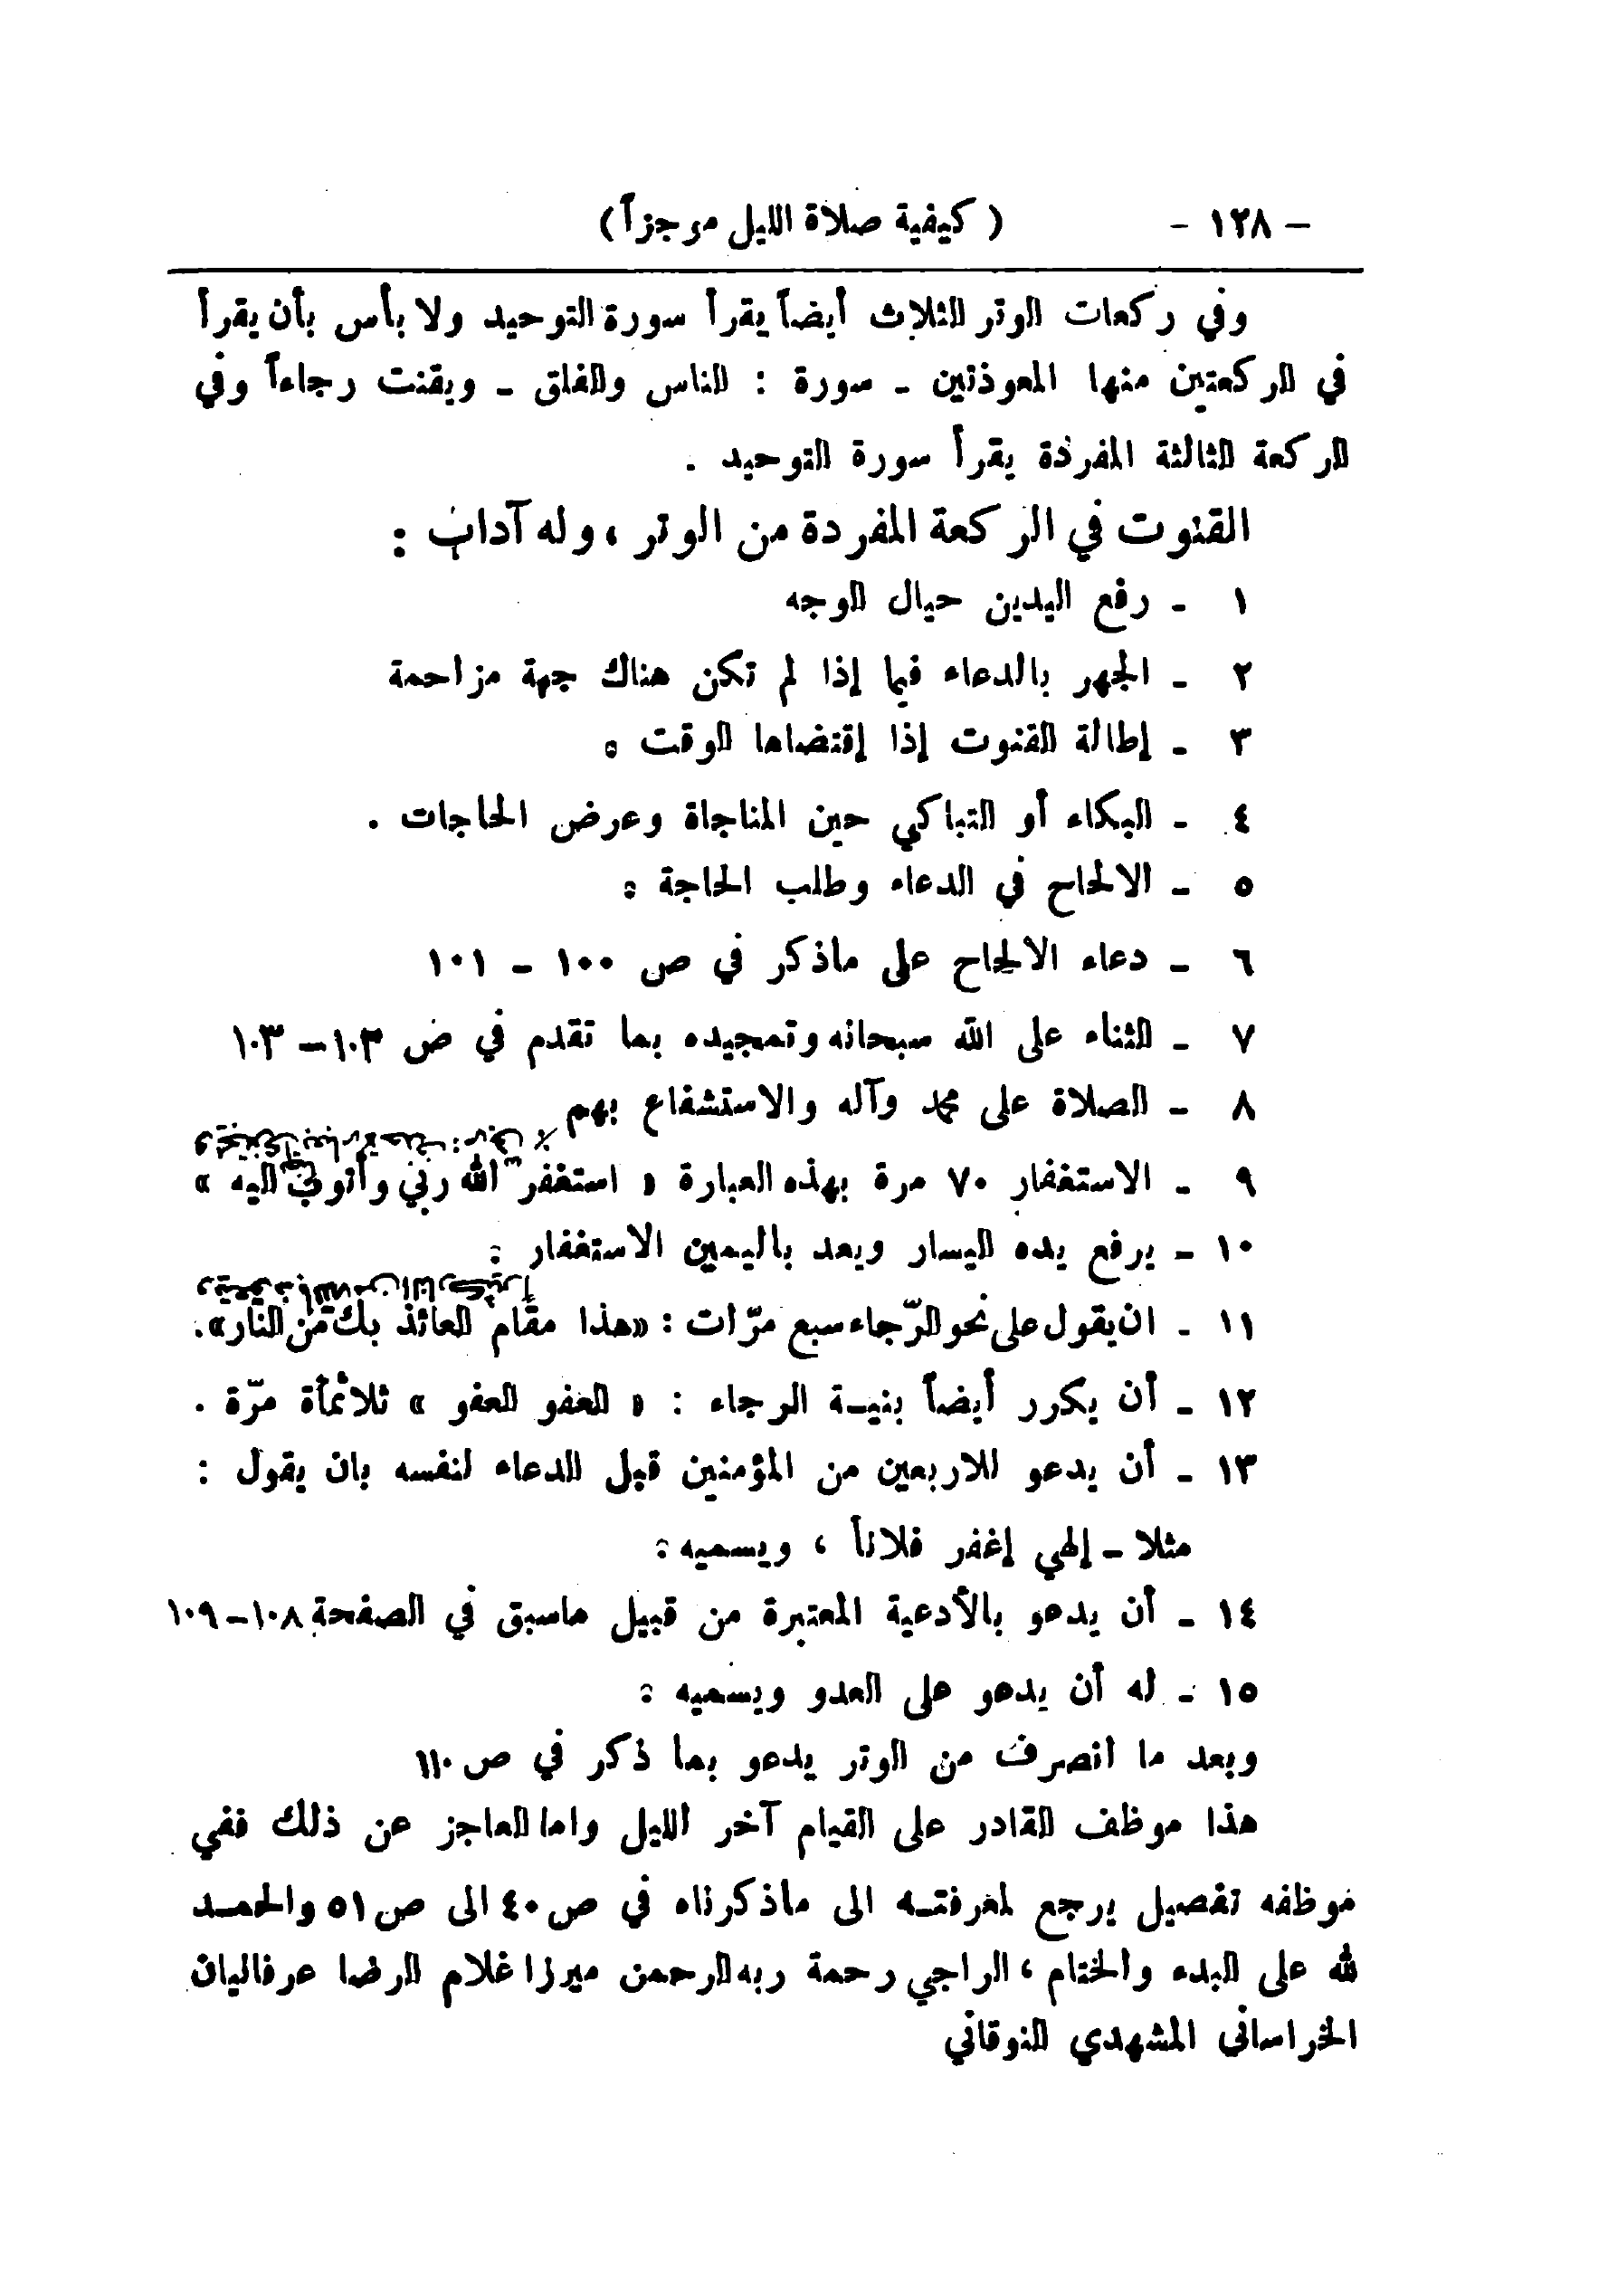 - ١٢٨ - ( كيفية صلاة الليل موجزاً )
وفي ركعات الوتر الثلاث أيضاً يقرأ سورة التوحيد ولا بأس بأن يقرأ
في الركعتين منها المعوذتين - سورة : الناس والفلق - ويقنت رجاءاً وفي
الركعة الثالثة المفردة يقرأ سورة التوحيد .
القنوت في الركعة المفردة من الوتر ، وله آداب :
١ - رفع اليدين حيال الوجه
٢ - الجهر بالدعاء فيما إذا لم تكن هناك جهة مزاحمة
٣ - إطالة القنوت إذا إقتضاها الوقت .
٤ - البكاء أو التباكي حين المناجاة وعرض الحاجات .
٥ - الالحاح في الدعاء وطلب الحاجة .
٦ - دعاء الالحاح على ماذكر في ص ١٠٠ - ١٠١
٧ - الثناء على الله سبحانه وتمجيده بما تقدم في ص ١٠٣ - ١٠٣
٨ - الصلاة على محمد وآله والاستشفاع بهم
٩ - الاستغفار ٧٠ مرة بهذه العبارة « استغفر الله ربي وأتوب اليه »
١٠ - يرفع يده اليسار ويعد باليمين الاستغفار .
١١ - ان يقول على نحو الرّجاء سبع مرّات : «هذا مقام العائذ بك من النار».
١٢ - أن يكرر أيضاً بنيـة الرجاء : « العفو العفو » ثلاثمأة مرّة .
١٣ - أن يدعو للاربعين من المؤمنين قبل الدعاء لنفسه بان يقول :
مثلا - إلهي إغفر فلاناً ، ويسميه .
١٤ - أن يدعو بالأدعية المعتبرة من قبيل ماسبق في الصفحة ١٠٨ - ١٠٩
١٥ - له أن يدعو على العدو ويسميه .
وبعد ما انصرف من الوتر يدعو بما ذكر في ص ١١٠
هذا موظف القادر على القيام آخر الليل واما العاجز عن ذلك ففي
موظفه تفصيل يرجع لمعرفتـه الى ماذكرناه في ص ٤٠ الى ص ٥١ والحمـد
لله على البدء والختام ، الراجي رحمة ربه الرحمن ميرزا غلام الرضا عرفانيان
الخراساني المشهدي النوقاني